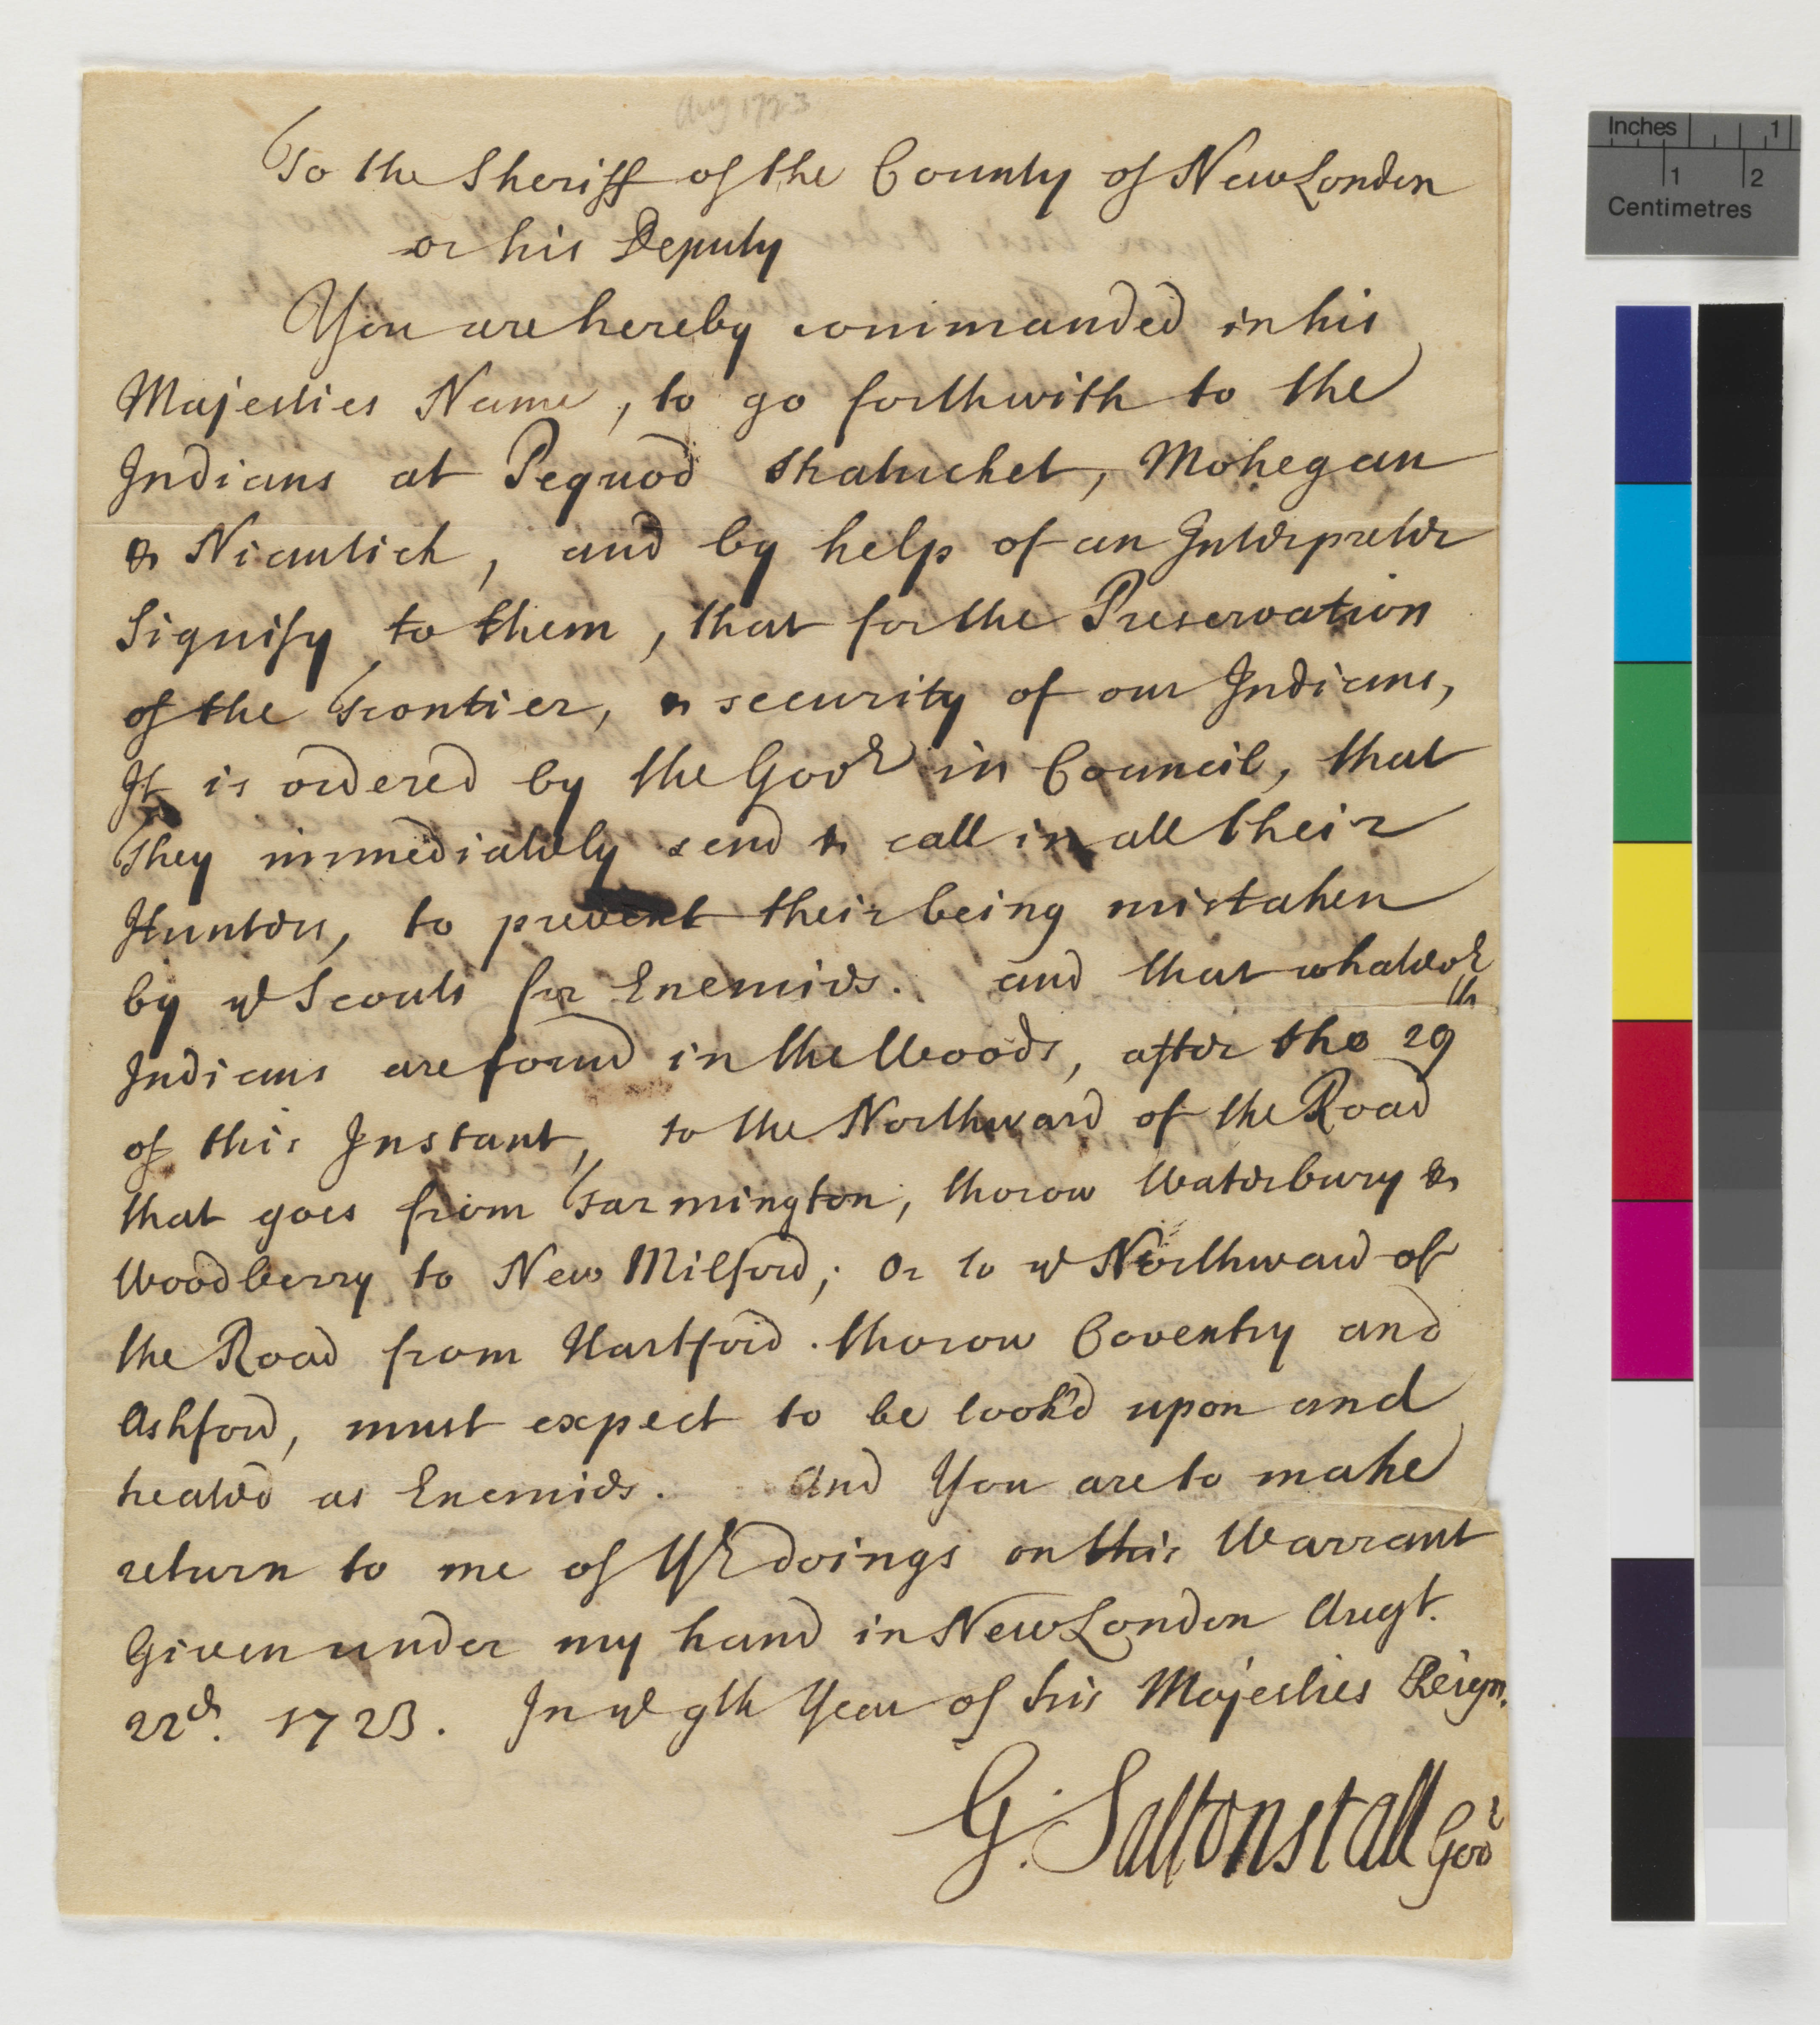 Aug 1723
To the Sheriff of the County of New London
or his Deputy
You are hereby commanded in his
Majesties Name, to go forthwith to the
Indians at Pequod Shatucket, Mohegan
& Niantick, and by help of an Interpreter
Signify to them, that for the Preservation
of the Frontier, & security of our Indians,
It is ordered by the Govr in Council, that
They immediately send & call in all their
Hunters, to prevent their being mistaken
by ye Scouts for Enemies. and that whatevr
Indians are found in the Woods, after the 29th
of this Instant, to the Northward of the Road
that goes from Farmington, thorow Waterbury &
Woodberry to New Milford; Or to ye Northward of
the Road from Hartford thorow Coventry and
Ashford, must expect to be look'd upon and
treated as Enemies. And You are to make
return to me of Yr doings on this Warrant
Given under my hand in New London Augt.
22d. 1723. In ye 9th Year of his Majesties Reign.
G. Saltonstall Govr
Inches 1
1 2
Centimetres